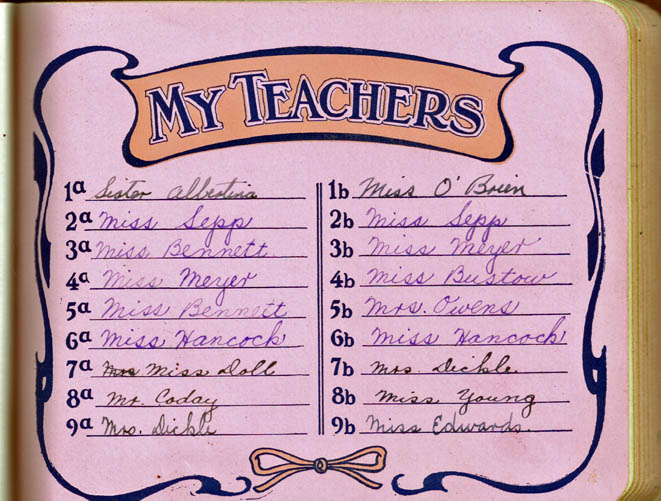 MY TEACHERS
1a Sister Albertina
2a Miss Sepp
3a Miss Bennett
4a Miss Meyer
5a Miss Bennett
6a Miss Hancock
7a Mrs Miss Doll
8a Mr. Coday
9a Mrs. Dickle
1b Miss O'Brien
2b Miss Sepp
3b Miss Meyer
4b Miss Bustow
5b Mrs. Owens
6b Miss Hancock
7b Mrs. Dickle
8b Miss Young
9b Miss Edwards.